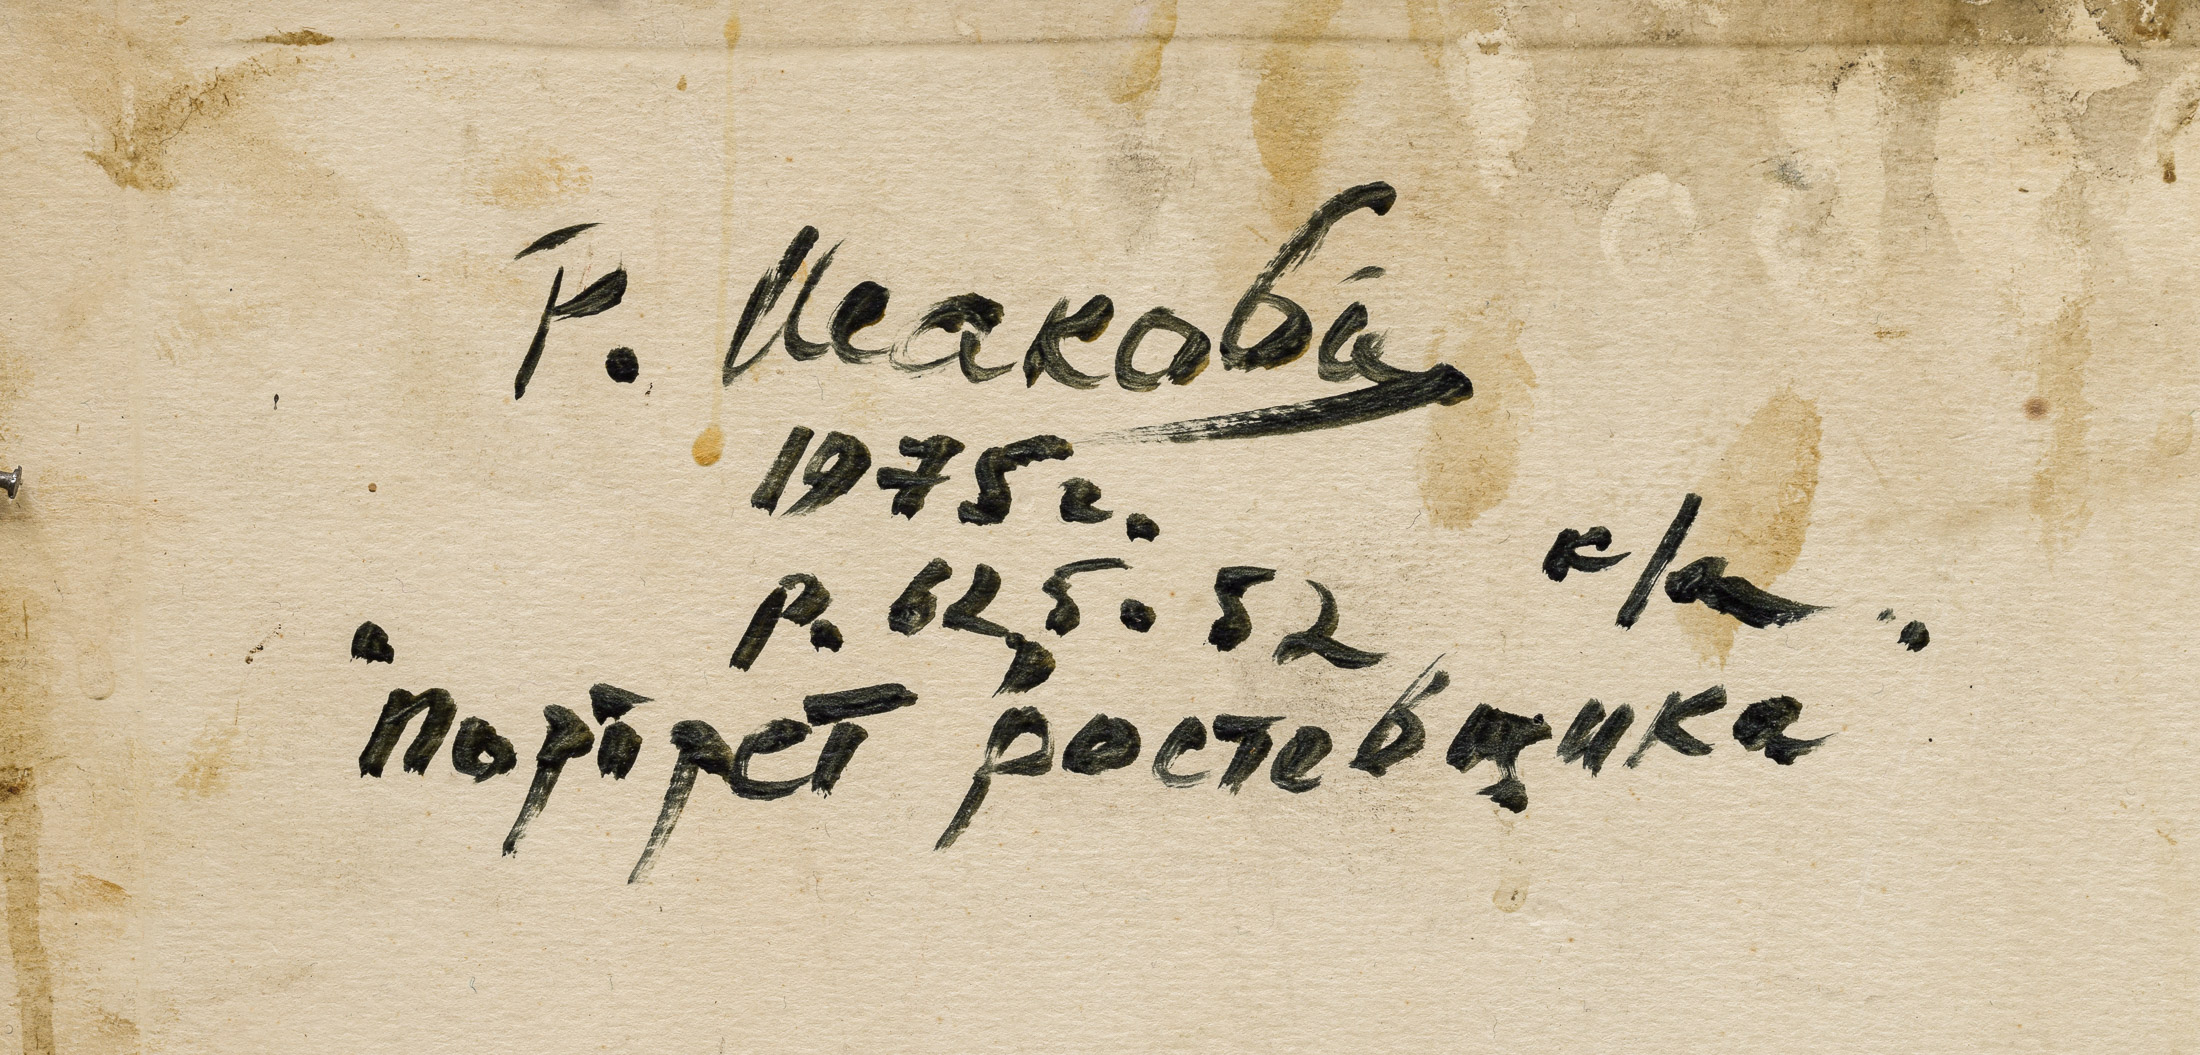 Р. Исакова
1975 г.
р. 62,5. 52 к/м
"Портрет ростевщика"